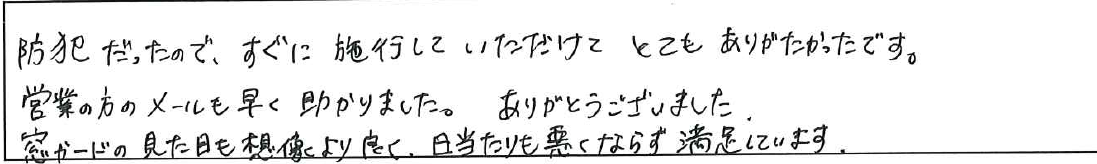 防犯だったので、すぐに施行していただけてとてもありがたかったです。
営業の方のメールも早く助かりました。ありがとうございました.
窓ガードの見た目も想像より良く、日当たりも悪くならず満足しています.